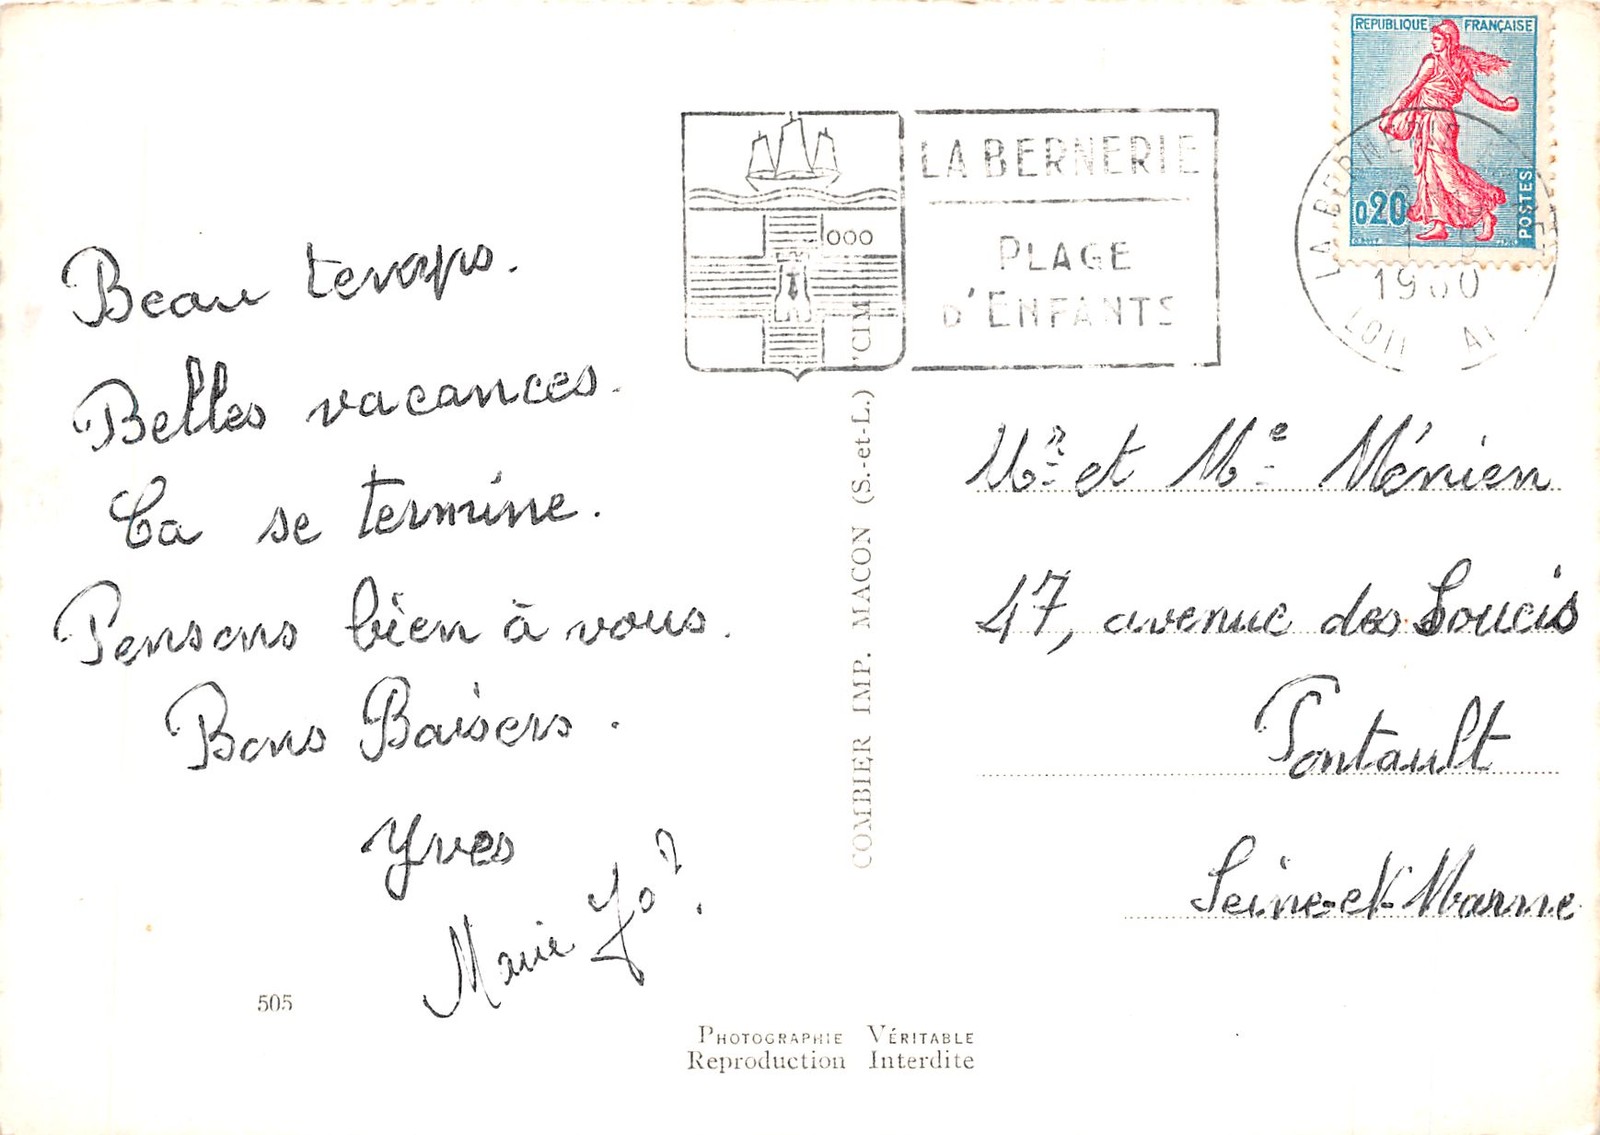 Beau temps.
Belles vacances.
Ca se termine.
Pensons bien à vous.
Bons Baisers.
Yves
Marie Jo?
505
LA BERNERIE
PLAGE
D'ENFANTS
REPUBLIQUE FRANÇAISE
0,20
POSTES
LA BERNERIE
1960
LOIRE
Mr et Me Ménien
47, avenue des Soucis
Pontault
Seine-et-Marne
COMBIER IMP. MACON (S.-et-L.) "CIM"
PHOTOGRAPHIE VÉRITABLE
Reproduction Interdite